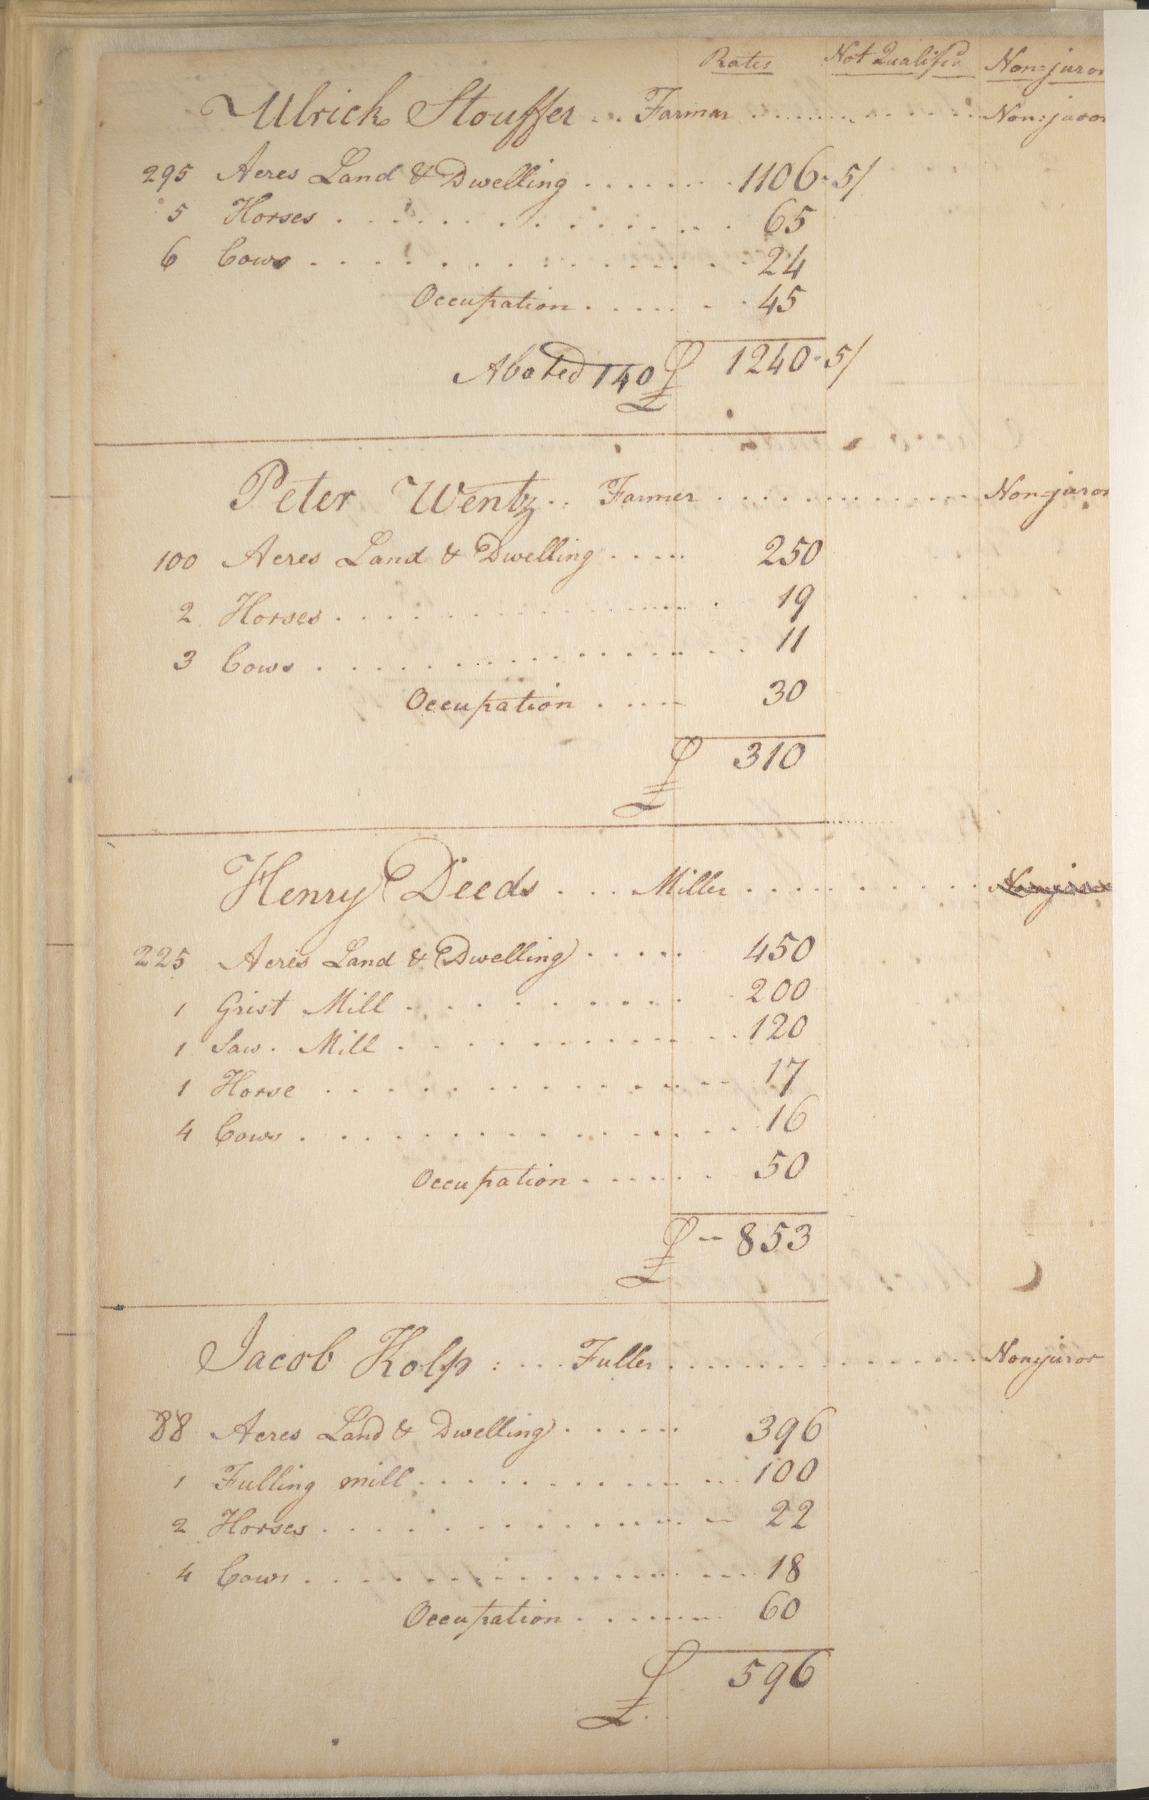 Rates Not Qualified Non=juror
Ulrick Stouffer ... Farmar ............ Non=juror
295 Acres Land & Dwelling ....... 1106-5/
5 Horses ............ 65
6 Cows ............ 24
Occupation ...... 45
Abated 140 £ 1240-5/
Peter Wentz .. Farmer ............ Non=juror
100 Acres Land & Dwelling ..... 250
2 Horses ............ 19
3 Cows ............ 11
Occupation ..... 30
£ 310
Henry Deeds ... Miller .......... Nonjuror
225 Acres Land & Dwelling ..... 450
1 Grist Mill .......... 200
1 Saw. Mill .......... 120
1 Horse ............ 17
4 Cows ............ 16
Occupation ...... 50
£ -- 853
Jacob Kolp : ... Fuller ............ Nonjuror
88 Acres Land & Dwelling ..... 396
1 Fulling mill .......... 100
2 Horses ............ 22
4 Cows ............ 18
Occupation ....... 60
£ 596